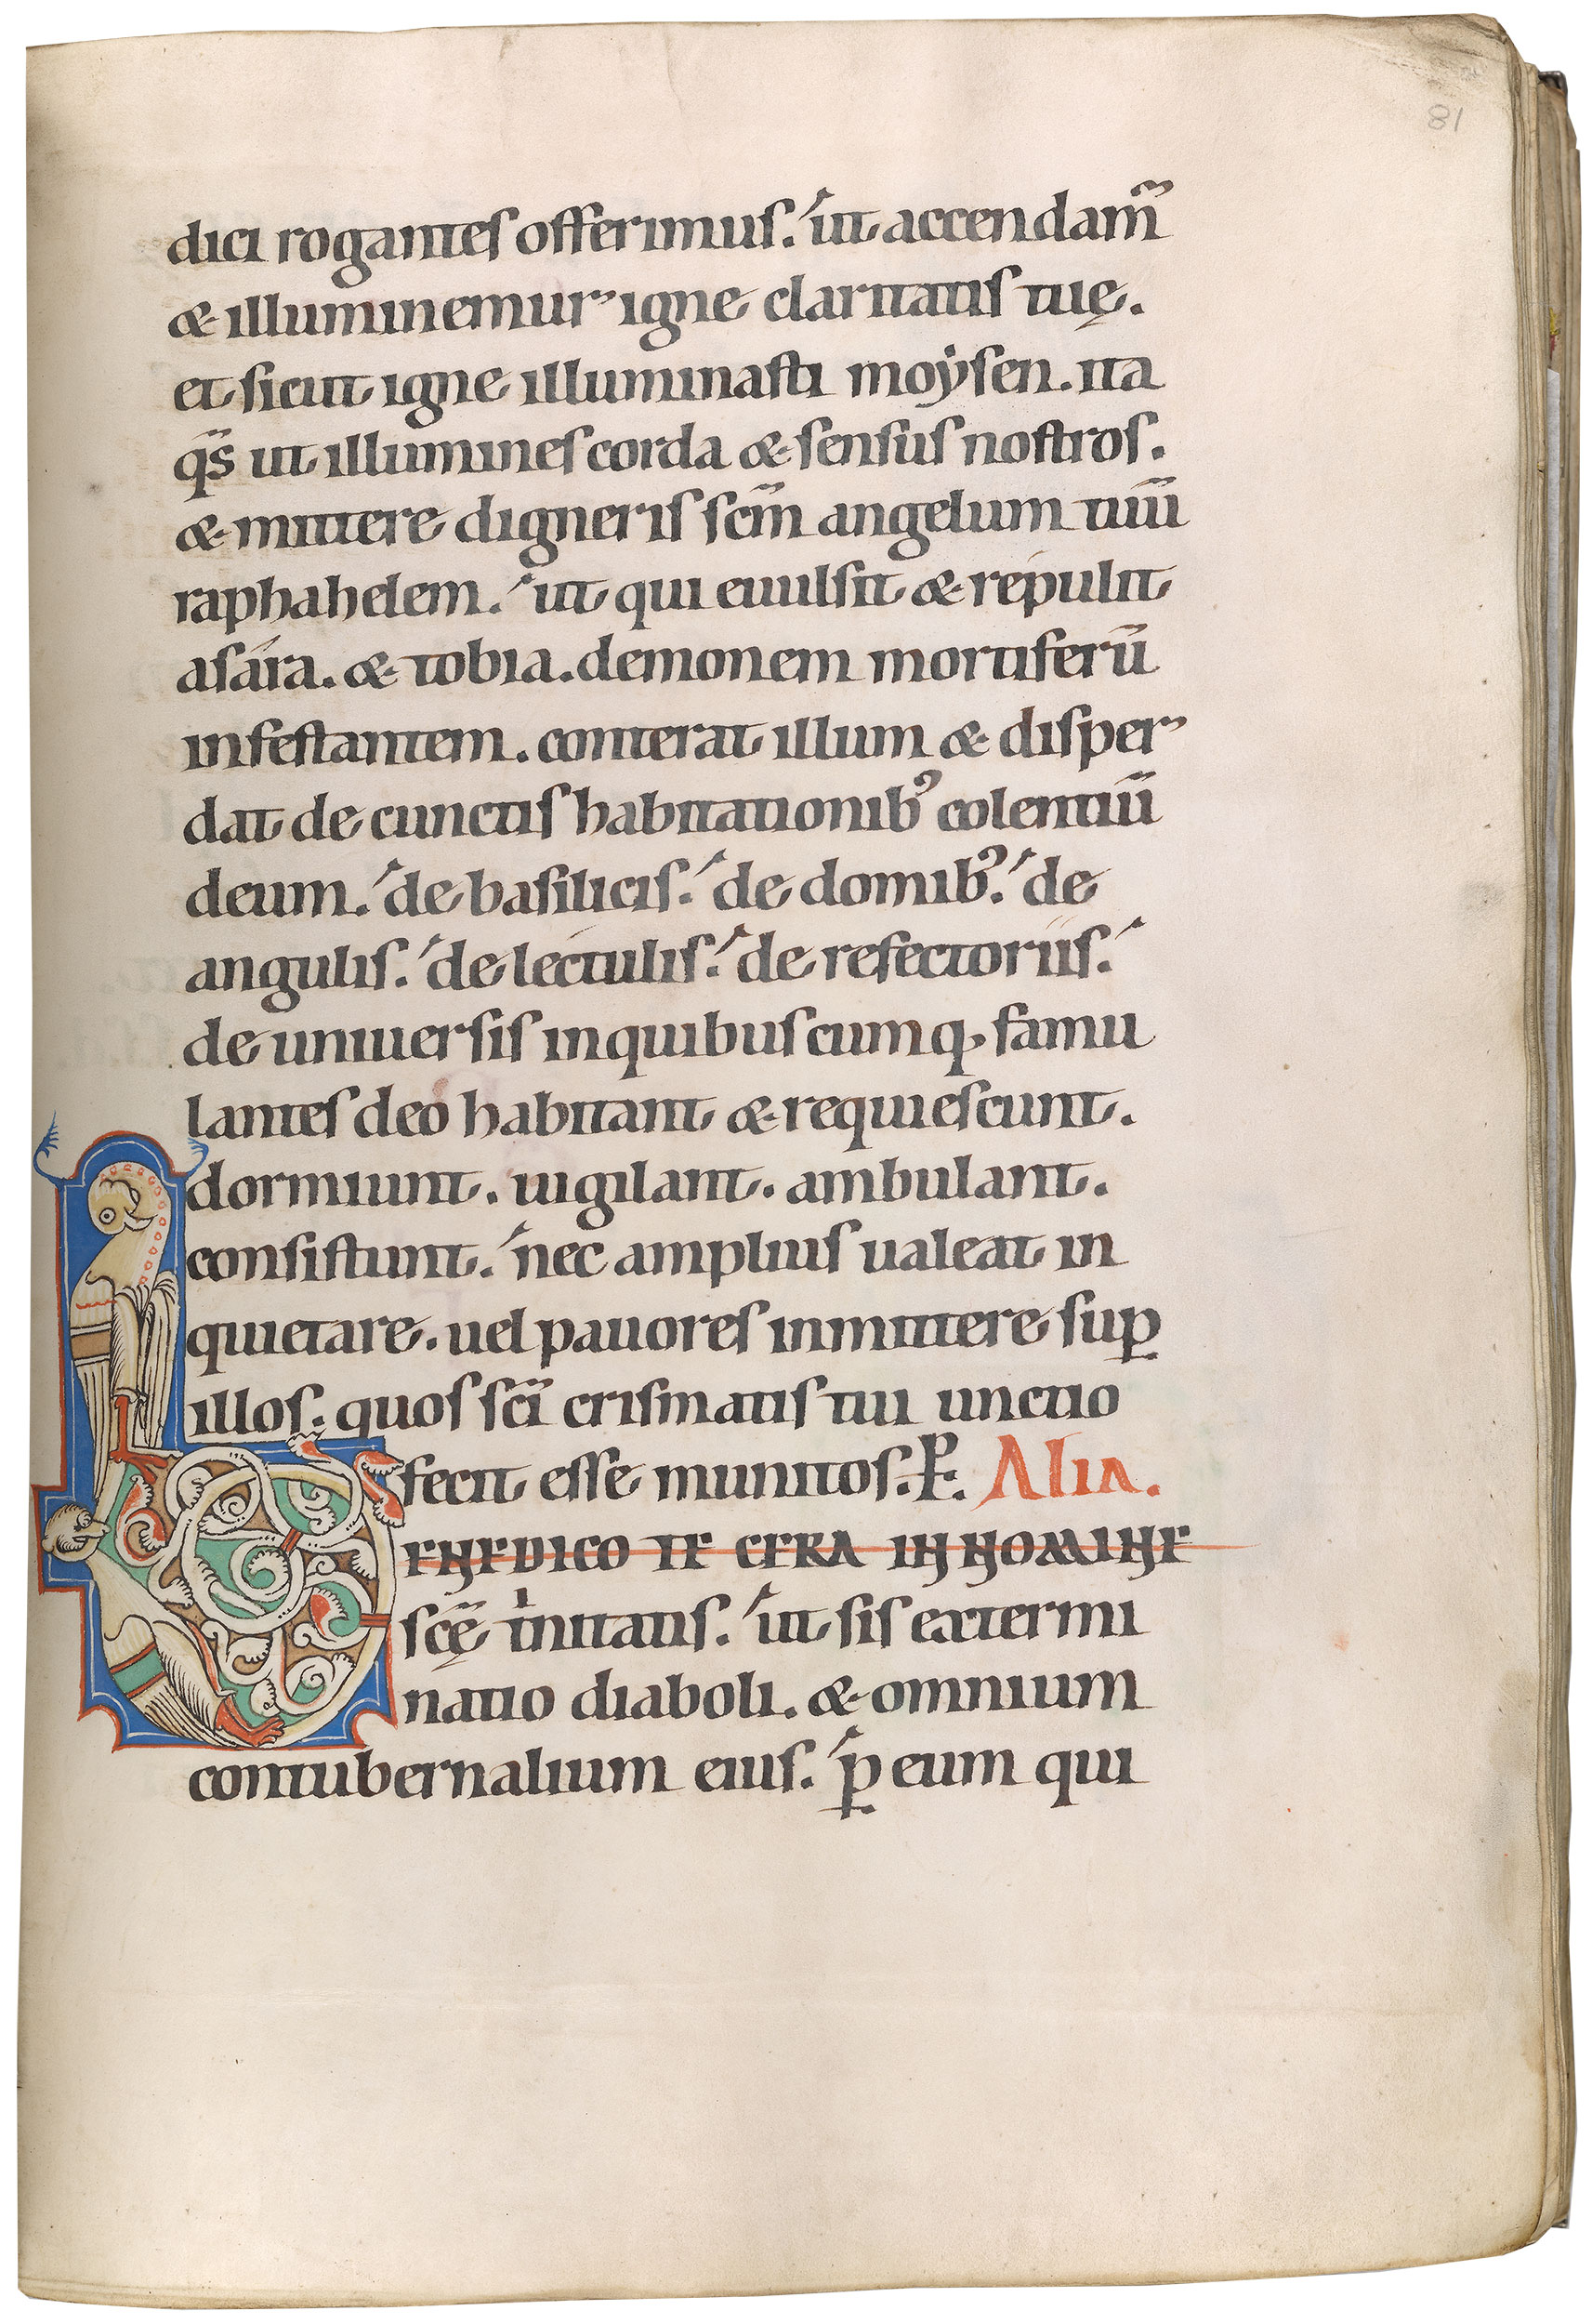 81
dici rogantes offerimus. ut accendam̃
& illuminemur igne claritatis tuę.
et sicut igne illuminasti moẏsen. ita
q̃s ut illumines corda & sensus nostros.
& mittere digneris sc̃m angelum tuũ
raphahelem. ut qui euulsit & repulit
asara. & tobia. demonem mortiferũ
infestantem. conterat illum & disper
dat de cunctis habitationibꝰ colentiũ
deum. de basilicis. de domibꝰ. de
angulis. de lectulis. de refectoriis.
de uniuersis in quibuscumq; famu
lantes deo habitant & requiescunt.
dormiunt. uigilant. ambulant.
consistunt. nec amplius ualeat in
quietare. uel pauores inmittere suꝑ
illos. quos sc̃i crismatis tui unctio
fecit esse munitos. P̱. Alia.
BENEDICO TE CERA IN NOMINE
sc̃ę tͥnitatis. ut sis extermi
natio diaboli. & omnium
contubernalium eius. ꝑ eum qui